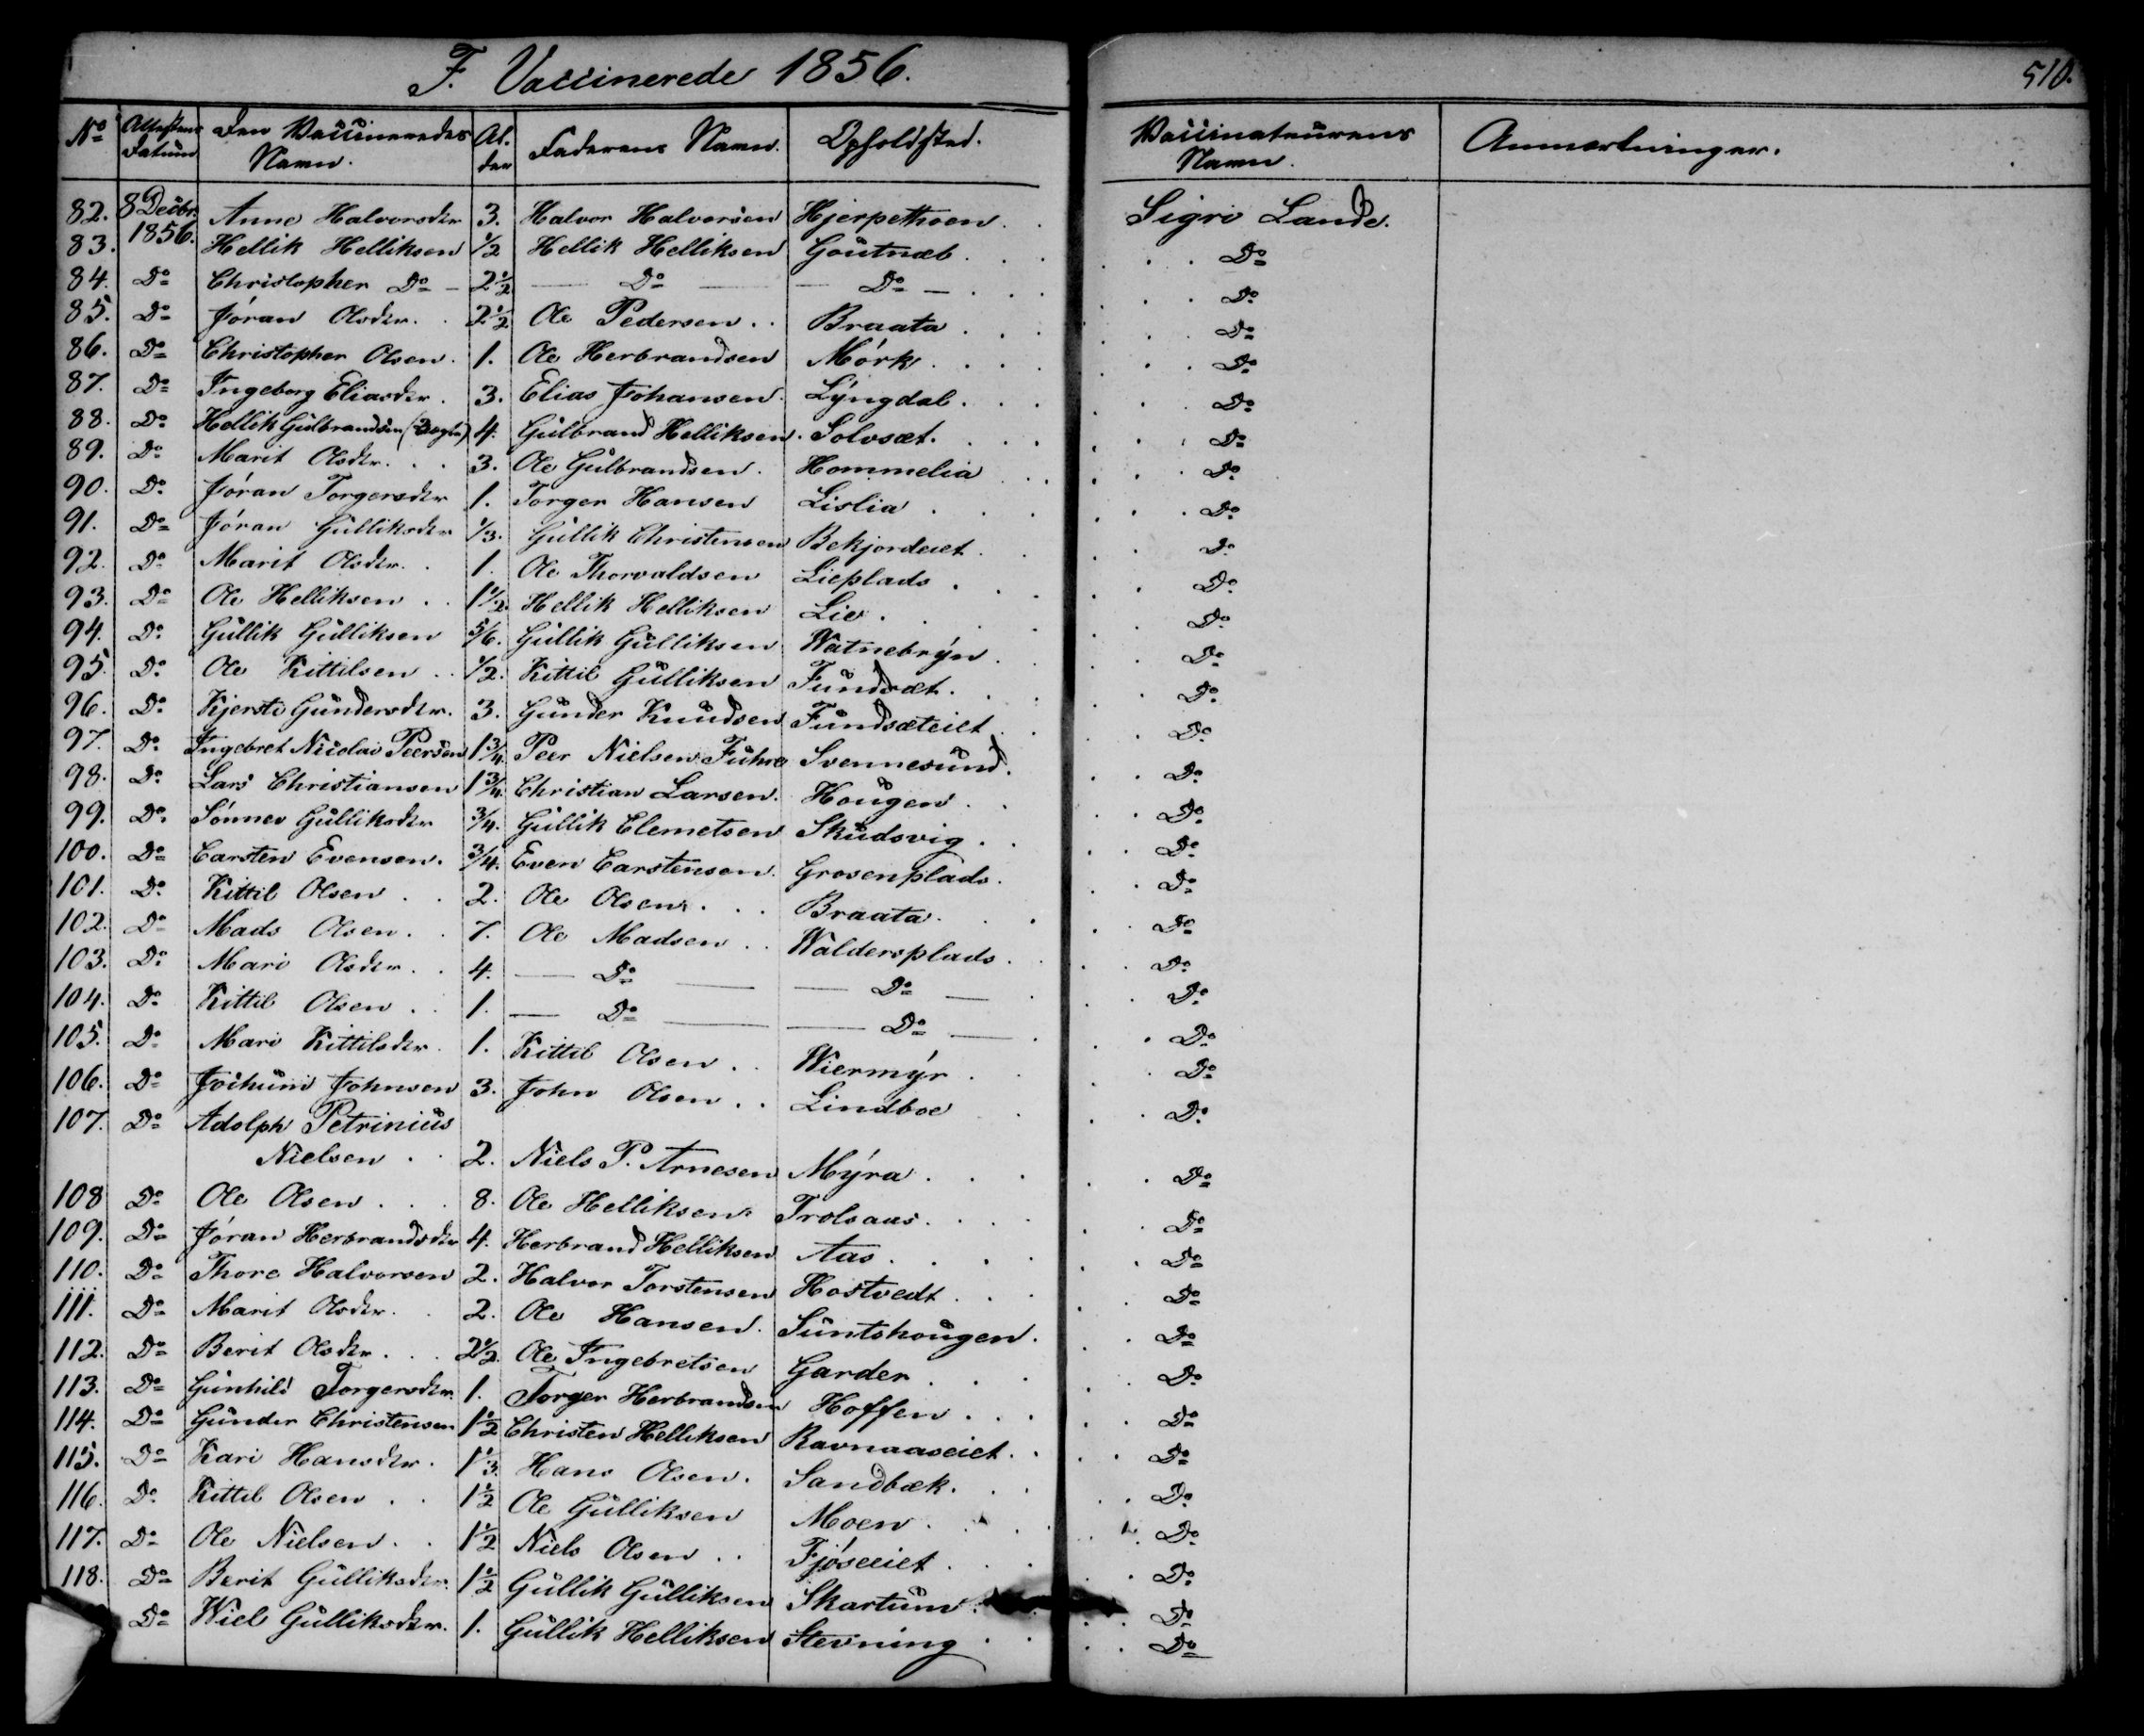 F. Vaccinerede 1856.
510.
No Attestens Datum Den Vaccineredes Navn. Alder Faderens Navn. Opholdsted. Vaccinateurens Navn. Anmærkninger.
82. 8 Decbr. 1856. Anne Halvorsdtr 3. Halvor Halvorsen Hjerpethoen. Sigri Lande.
83. Hellik Helliksen 1/2 Hellik Helliksen Goutnæb. Do
84. Do Christopher Do 2 1/2 Do Do Do
85. Do Jóran Olsdtr. 2 1/2 Ole Pedersen Braata. Do
86. Do Christopher Olsen. 1. Ole Herbrandsen Mórk. Do
87. Do Ingeborg Eliasdtr. 3. Elias Johansen. Lÿngdal. Do
88. Do Hellik Gulbrandsen 4. Gulbrand Helliksen. Solosæt. Do
89. Do Marit Olsdtr. 3. Ole Gulbrandsen. Hommelia Do
90. Do Jóran Torgersdtr 1. Torger Hansen Lislia Do
91. Do Jóran Gulliksdtr 1/3. Gullik Christensen Bekjordeiet. Do
92. Do Marit Olsdtr. 1. Ole Thorvaldsen Lieplads. Do
93. Do Ole Helliksen 1 1/2. Hellik Helliksen Lie. Do
94. Do Gullik Gulliksen 5/6. Gullik Gulliksen Watnebrÿn. Do
95. Do Ole Kittilsen 1/2. Kittil Gulliksen Fundsæt. Do
96. Do Kjersti Gundersdtr. 3. Gunder Knudsen Fundsæteiet Do
97. Do Ingebret Nicolai Peersen 1 3/4. Peer Nielsen Fuhre Svennesund. Do
98. Do Lars Christiansen 1 3/4. Christian Larsen. Hougen. Do
99. Do Sónnev Gulliksdtr 3/4. Gullik Clemetsen Skudsvig. Do
100. Do Carsten Evensen. 3/4. Even Carstensen. Grosenplads. Do
101. Do Kittil Olsen 2. Ole Olsen. Braata. Do
102. Do Mads Olsen. 7. Ole Madsen Waldersplads. Do
103. Do Mari Olsdtr. 4. Do Do Do
104. Do Kittil Olsen 1. Do Do Do
105. Do Mari Kittilsdtr. 1. Kittil Olsen Wiermÿr. Do
106. Do Jochum Johnsen 3. John Olsen Lindboe Do
107. Do Adolph Petrinius Do
Nielsen 2. Niels P. Arnesen Mÿra. Do
108 Do Ole Olsen 8. Ole Helliksen. Trolsaas. Do
109. Do Jóran Herbrandsdtr 4. Herbrand Helliksen Aas. Do
110. Do Thore Halvorsen 2. Halvor Torstensen Hostvedt. Do
111. Do Marit Olsdtr. 2. Ole Hansen. Suntshougen. Do
112. Do Berit Olsdtr. 2 1/2. Ole Ingebretsen Garder Do
113. Do Gunhild Torgersdtr. 1. Torger Herbrandsen Hoffen. Do
114. Do Gunder Christensen 1 1/2 Christen Helliksen Ravnaaseiet. Do
115. Do Kari Hansdtr. 1 1/3. Hans Olsen. Sandbæk. Do
116. Do Kittil Olsen 1 1/2 Ole Gulliksen Moen. Do
117. Do Ole Nielsen 1 1/2 Niels Olsen Fjóseiet. Do
118. Do Berit Gulliksdtr. 1 1/2 Gullik Gulliksen Skartum. Do
Do Wiel Gulliksdtr. 1. Gullik Helliksen Stevning Do